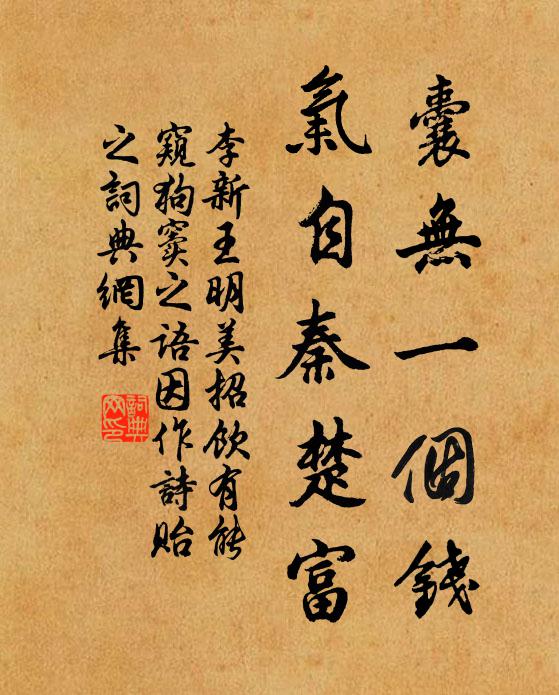 囊無一個錢
氣自秦楚富
李新王明美招飲有能
窺狗竇之語因作詩貽
之詞典網集
詞典網印